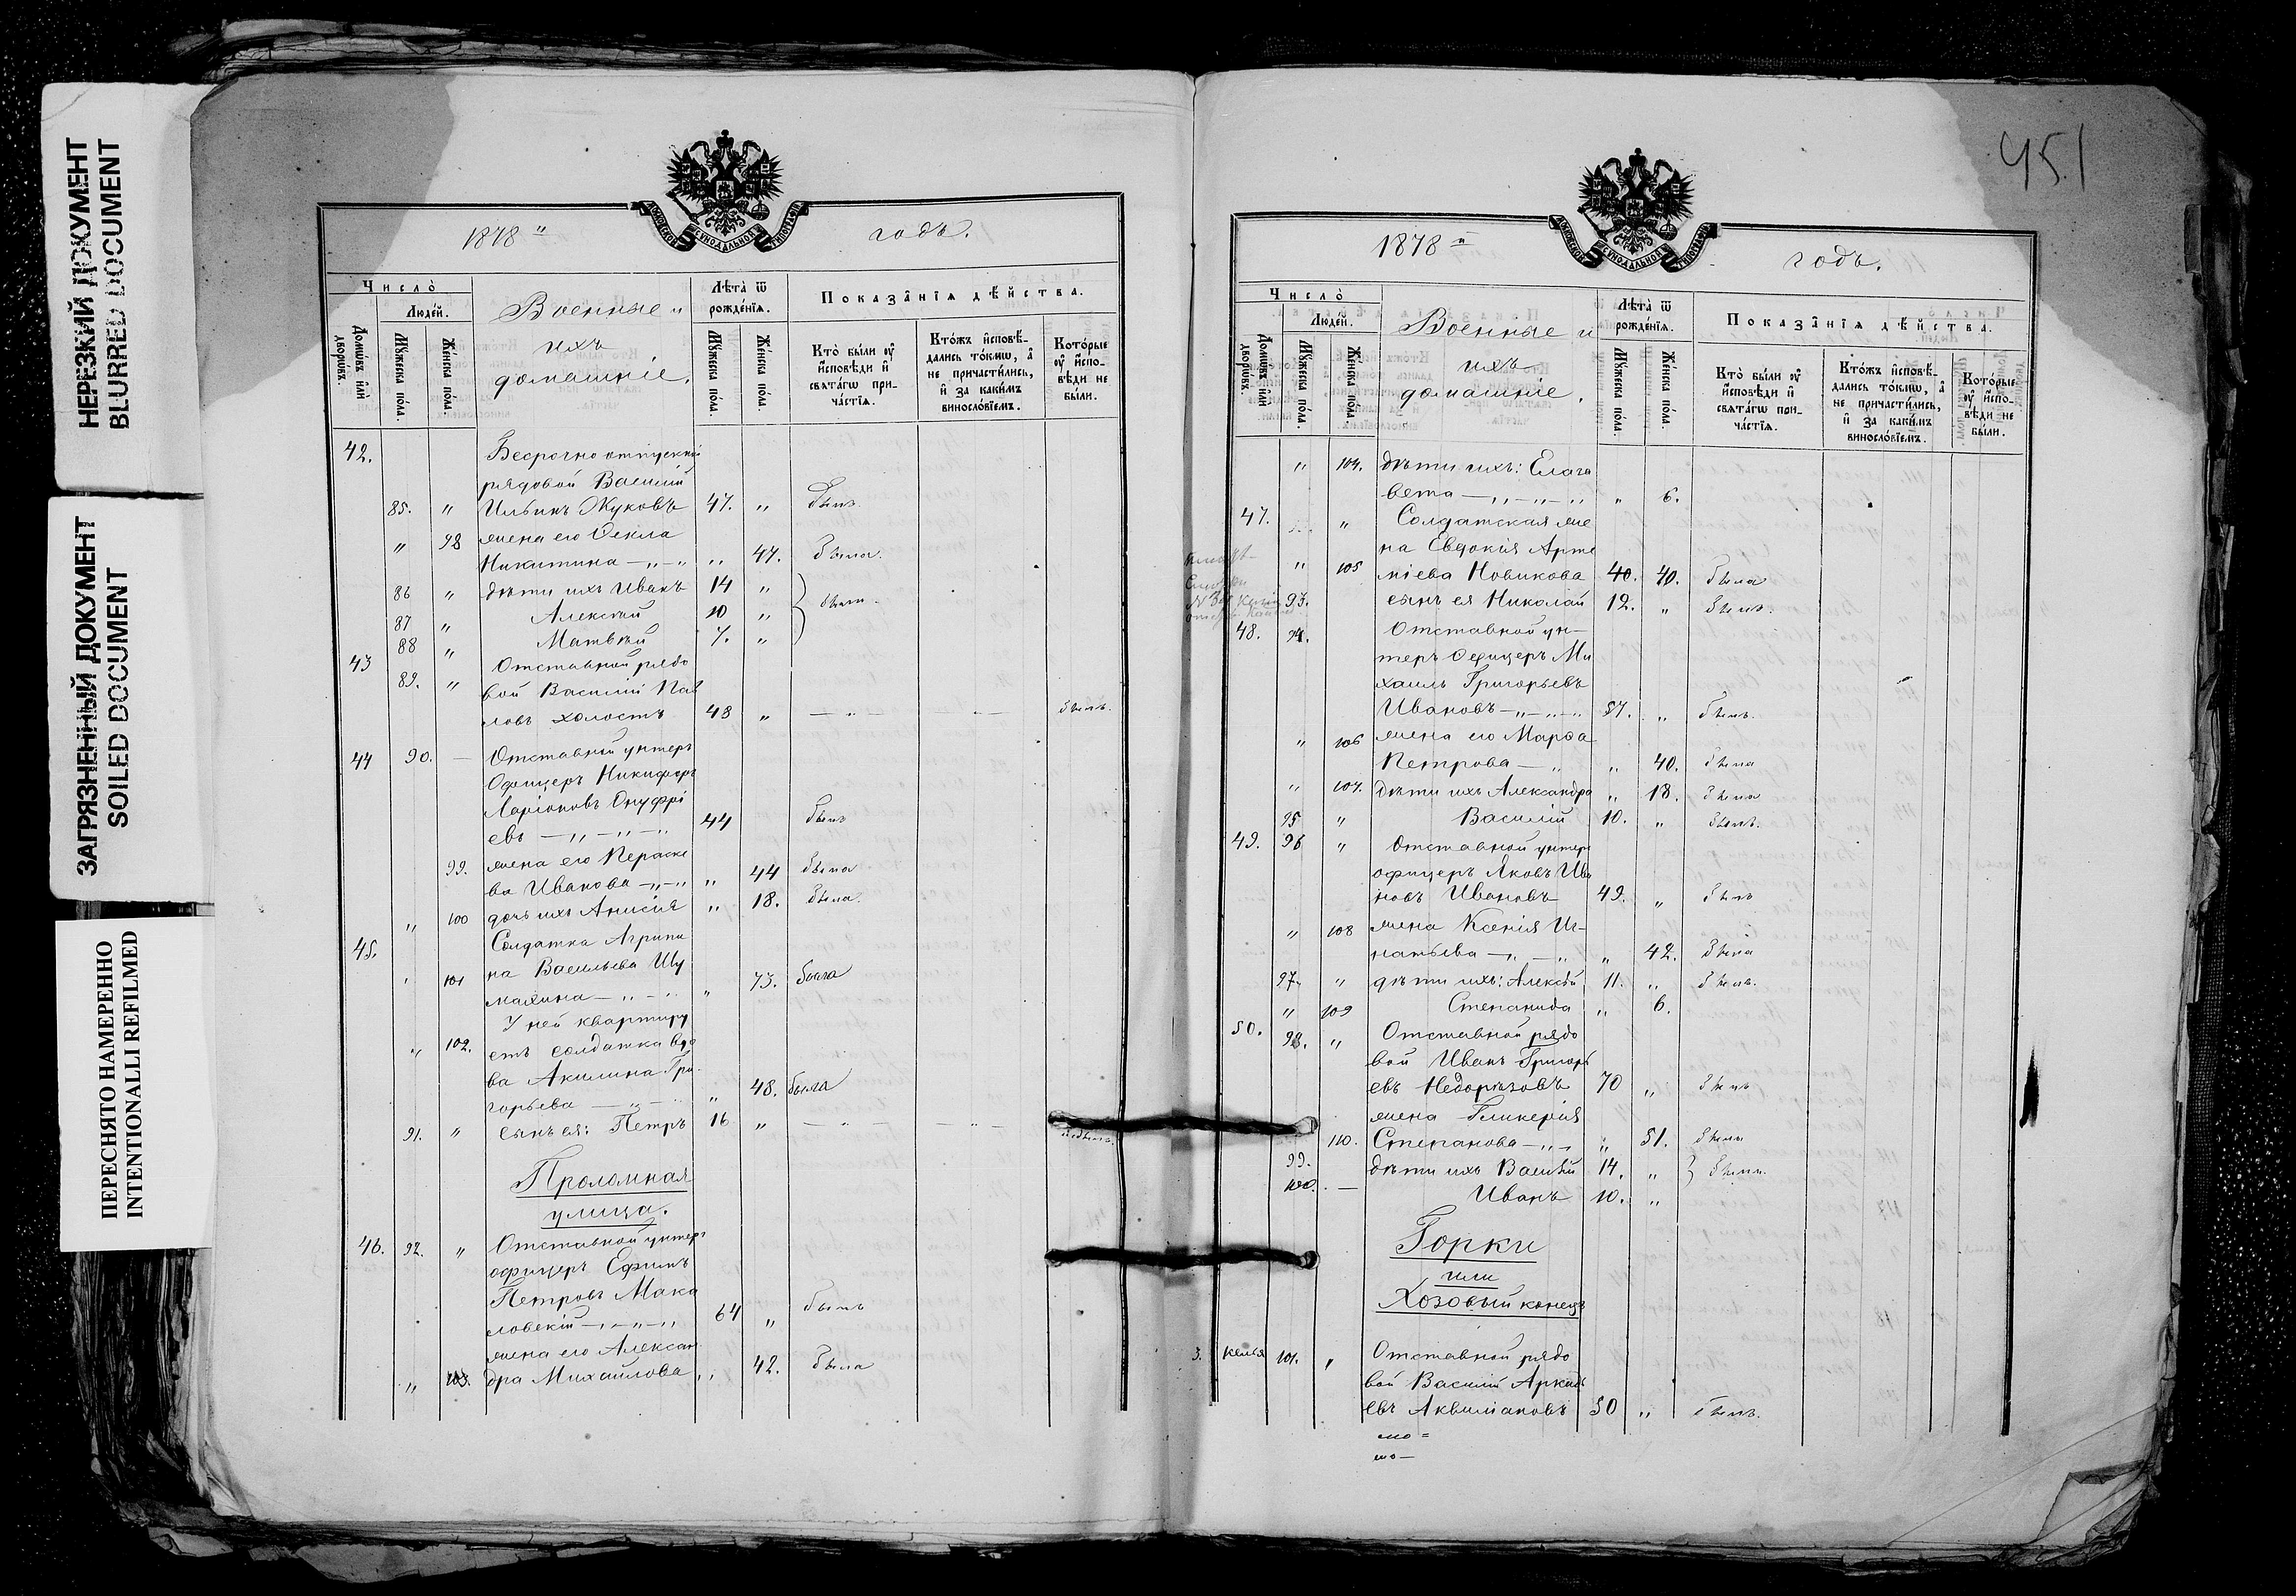 НЕРЕЗКИЙ ДОКУМЕНТ
BLURRED DOCUMENT
ЗАГРЯЗНЕННЫЙ ДОКУМЕНТ
SOILED DOCUMENT
ПЕРЕСНЯТО НАМЕРЕННО
INTENTIONALLI REFILMED
1878 годъ.
Число̀
Людéй.
Домѡ́въ и҆лѝ дворѡ́въ.
Мꙋ́жеска по́ла.
Же́нска по́ла.
Военные и
ихъ
домашніе.
Лѣ́та ѿ рожде́нїѧ.
Мꙋ́жеска по́ла.
Же́нска по́ла.
Показа̑нїѧ дѣ́йства.
Кто̀ бы́ли ᲂу҆ и҆сповѣди и҆ свѧта́гѡ при-
ча́стїѧ.
Кто́жъ и҆сповѣ́-
дались то́кмѡ, а҆
не причасти́лись,
и҆ за каки́мъ
винословїемъ.
Кото́рые
ᲂу҆ и҆спо-
вѣди не
бы́ли.
42. Безсрочно отпускный
рядовой Василій
85. " Ильинъ Жуковъ 47. " былъ
" 98 жена его Ѳекла
Никитина —"—" " 47. была.
86 " дѣти ихъ Иванъ 14 "
87 " Алексѣй 10 " были.
88 " Матвѣй 7. "
43 Отставной рядо
89. " вой Василій Пав
ловъ холостъ 43 " — " — — " —
44 90. — Отставной унтеръ
Офицеръ Никифоръ
Ларіоновъ Онуфрі
евъ —"—"—" 44 былъ
99. жена его Параске
ва Иванова —"—" " 44 была
" 100 дочь ихъ Анисія " 18. была.
45. Солдатка Агрипи
на Васильева Шу
" 101 махина —"—" " 73. была
У ней квартиру
" 102. етъ солдатка вдо
ва Акилина Гри
горьева —"— " 48. была
91. " сынъ ея: Петръ 16 " — " — — " —
Проломная
улица.
46. 92. " Отставной унтеръ
офицеръ Ефимъ
Петровъ Мака
ловскій —"—"—" 64 " былъ
жена его Алексан
" 103. дра Михайлова " 42. была
451
1878 й годъ.
Число̀
Людéй.
Домѡ́въ и҆лѝ дворѡ́въ.
Мꙋ́жеска по́ла.
Же́нска по́ла.
Военные и
ихъ
домашніе.
Лѣ́та ѿ рожде́нїѧ.
Мꙋ́жеска по́ла.
Же́нска по́ла.
Показа̑нїѧ дѣ́йства.
Кто̀ бы́ли ᲂу҆ и҆сповѣди и҆ свѧта́гѡ при-
ча́стїѧ.
Кто́жъ и҆сповѣ́-
дались то́кмѡ, а҆
не причасти́лись,
и҆ за каки́мъ
винословїемъ.
Кото́рые
ᲂу҆ и҆спо-
вѣди не
бы́ли.
" 104. дѣти ихъ: Елиза
вета —"—"—" " 6.
47. " Солдатская же
на Евдокія Арте
" 105 міева Новикова 40. 40. была
93. сынъ ея Николай 12. " былъ.
48. 94. Отставной ун-
теръ Офицеръ Ми
хаилъ Григорьевъ
Ивановъ —"—"—" 57. " былъ.
" 106 жена его Марѳа
Петрова — " " 40. была
" 107. дѣти ихъ Александра " 18. была
95 " Василій 10. " былъ.
49. 96 " Отставной унтеръ
офицеръ Яковъ Ива
новъ Ивановъ 49. " былъ
" 108 жена Ксенія Иг-
натьева —"—" " 42. была
97. " дѣти ихъ: Алексѣй 11. " былъ.
" 109 Степанида " 6.
50. 98. " Отставной рядо
вой Иванъ Григорь
евъ Недорѣзовъ 70 " былъ
жена Гликерія
110. Степанова —"— " 51. была
99. дѣти ихъ Василій 14. " были.
100. — Иванъ 10. "
Горки
или
Хозовый конецъ
3. келья 101. " Отставной рядо
вой Василій Аркадь
евъ Аквиліановъ 50 " былъ.